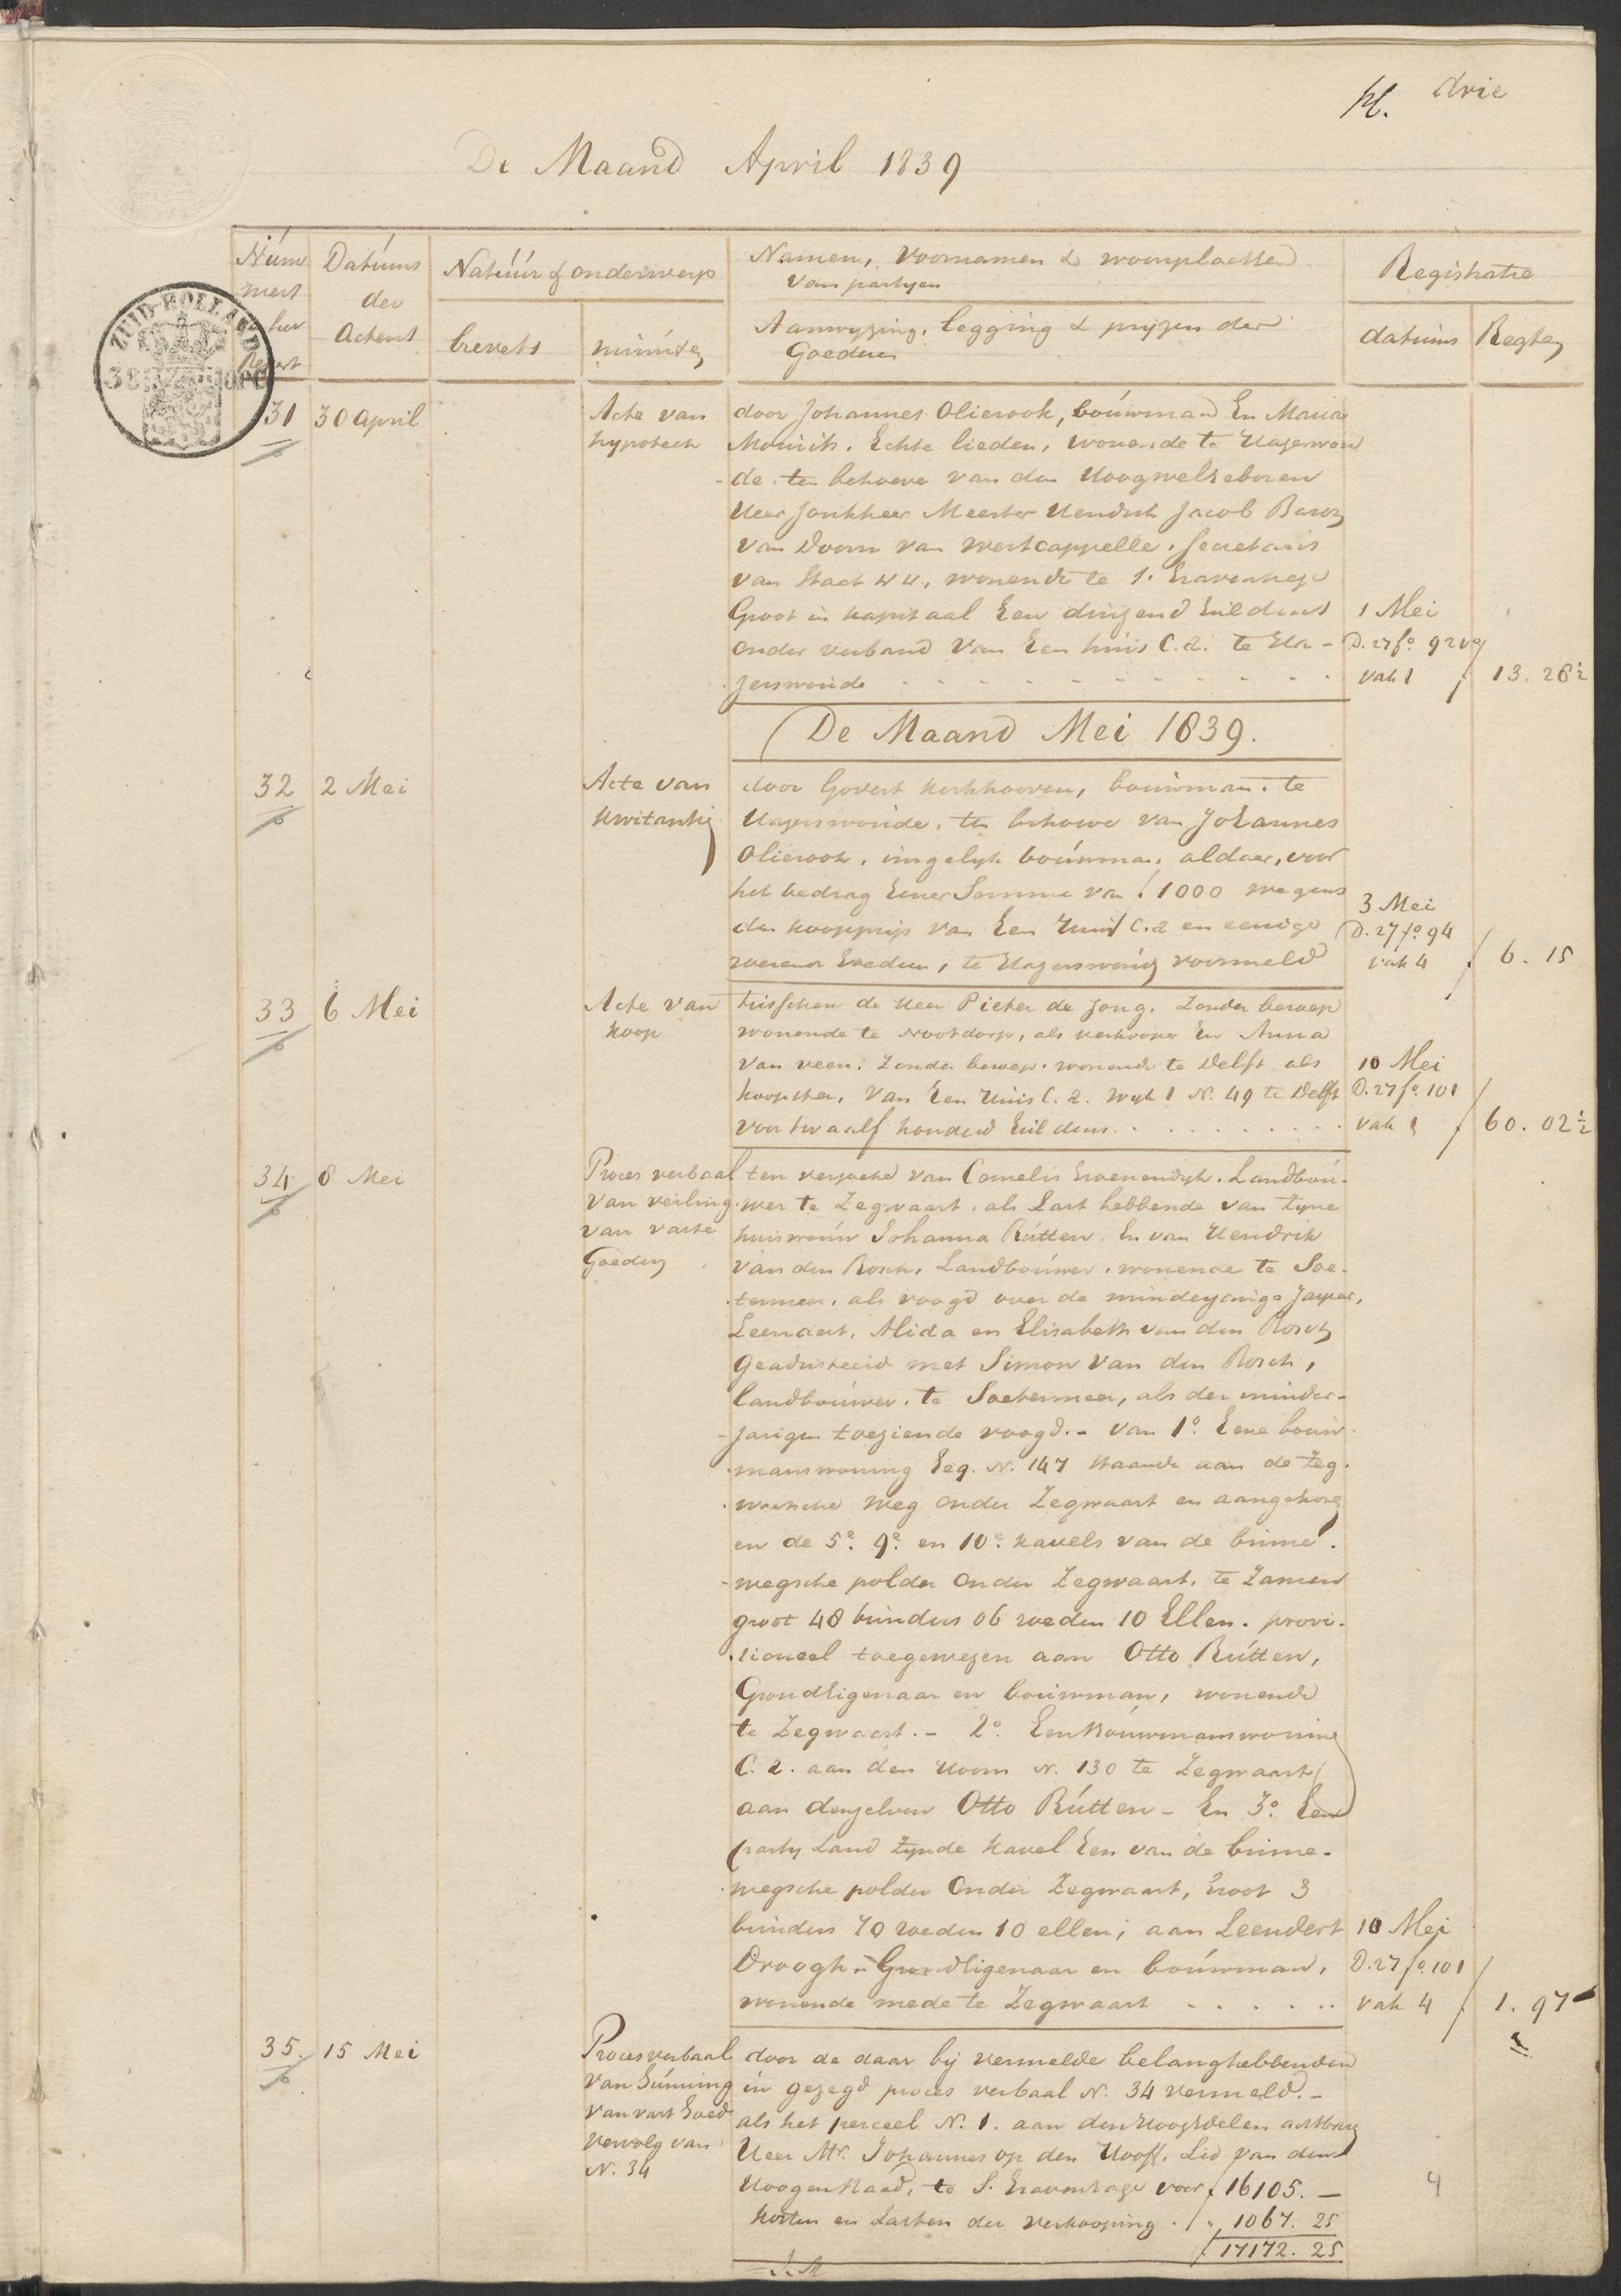 drie
De Maand April 1839
Num
mers
der
Repert
Datums
der
Actens
Natuur & onderwerp
brevets
minuten
Namen, Voornamen & woonplaetsen
van partyen
Aanwyzing, legging & pryzen der
Goederen
Registratie
datums
Regten
ZUID-HOLLAND
31 30 april
Acte van
hypoteek
door Johannes Olierook, bouwman En Maria
Mourits, Echte lieden, wonende te Hazerwou
-de, ten behoeve van den Hoogwelgeboren
Heer Jonkheer Meester Hendrik Jacob Baron
van Doorn van Westcappelle, Secretaris
van Staat &&, wonende te s. Gravenhage
Groot in kapitaal Een duizend Guldens
onder verband van Een huis C.a. te Ha-
zerswoude
1 Mei
D. 27 fo. 92 vo
vak 1
13. 26½
De Maand Mei 1839.
32 2 Mei
Acte van
kwitantie
door Govert Kerkhoven, bouwman te
Hazerswoude, ten behoeve van Johannes
Olierook, insgelyk bouwman aldaar, voor
het bedrag Eener Somme van f 1000 wegens
den koopprys van Een Huis C.a en eenige
roerende Goederen, te Hazerswoude voormeld
3 Mei
D. 27 fo. 94
vak 4
6. 15
33 6 Mei
Acte van
koop
tusschen de Heer Pieter de Jong, Zonder beroep
wonende te Nootdorp, als verkooper En Anna
van veen, Zonder beroep, wonende te Delft als
koopster, van Een Huis C.a. Wyk 1 N. 49 te Delft
voor twaalf honderd Guldens
10 Mei
D. 27 fo. 101
vak
60. 02½
34 8 Mei
Proces verbaal
van veiling
van vaste
Goederen
ten verzoeke van Cornelis Groenendyk, Landbou-
wer te Zegwaart, als Last hebbende van zyne
huisvrouw Johanna Rutten, En van Hendrik
van den Bosch, Landbouwer, wonende te Soe-
termeer, als voogd over de minderjarige Jasper,
Leendert, Alida en Elisabeth van den Bosch
Geadsisteerd met Simon van den Bosch,
landbouwer, te Soetermeer, als der minder-
jarigen toeziende voogd. - van 1o. Eene bouw-
manswoning Geq. N. 147 staande aan de Zeg-
waartsche weg onder Zegwaart en aangehorig
en de 5e. 9e. en 10e. kavels van de binne-
wegsche polder onder Zegwaart, te Zamen
groot 48 bunders 06 roeden 10 Ellen. provi-
sioneel toegewezen aan Otto Rutten,
Grondeigenaar en bouwman, wonende
te Zegwaart. - 2o. Een Bouwmanswoning
C.a. aan den Hoorn N. 130 te Zegwaart
aan denzelven Otto Rutten - En 3o. Een
party Land zynde kavel Een van de binne-
wegsche polder Onder Zegwaart, Groot 3
bunders 70 roeden 10 ellen; aan Leendert
Droogh, Grondeigenaar en bouwman,
wonende mede te Zegwaart
10 Mei
D. 27 fo. 101
vak 4
1. 97
35. 15 Mei
Proces verbaal
van Gunning
van vast Goed
vervolg van
N. 34
door de daar by vermelde belanghebbenden
in gezegd proces verbaal N. 34 vermeld. -
als het perceel N. 1. aan den HoogEdelen achtbaren
Heer Mr. Johannes op den Hooff, Lid van den
Hoogen Raad, te S. Gravenhage voor f 16105. -
Kosten en Lasten der verkooping " 1067. 25
f 17172. 25.
4